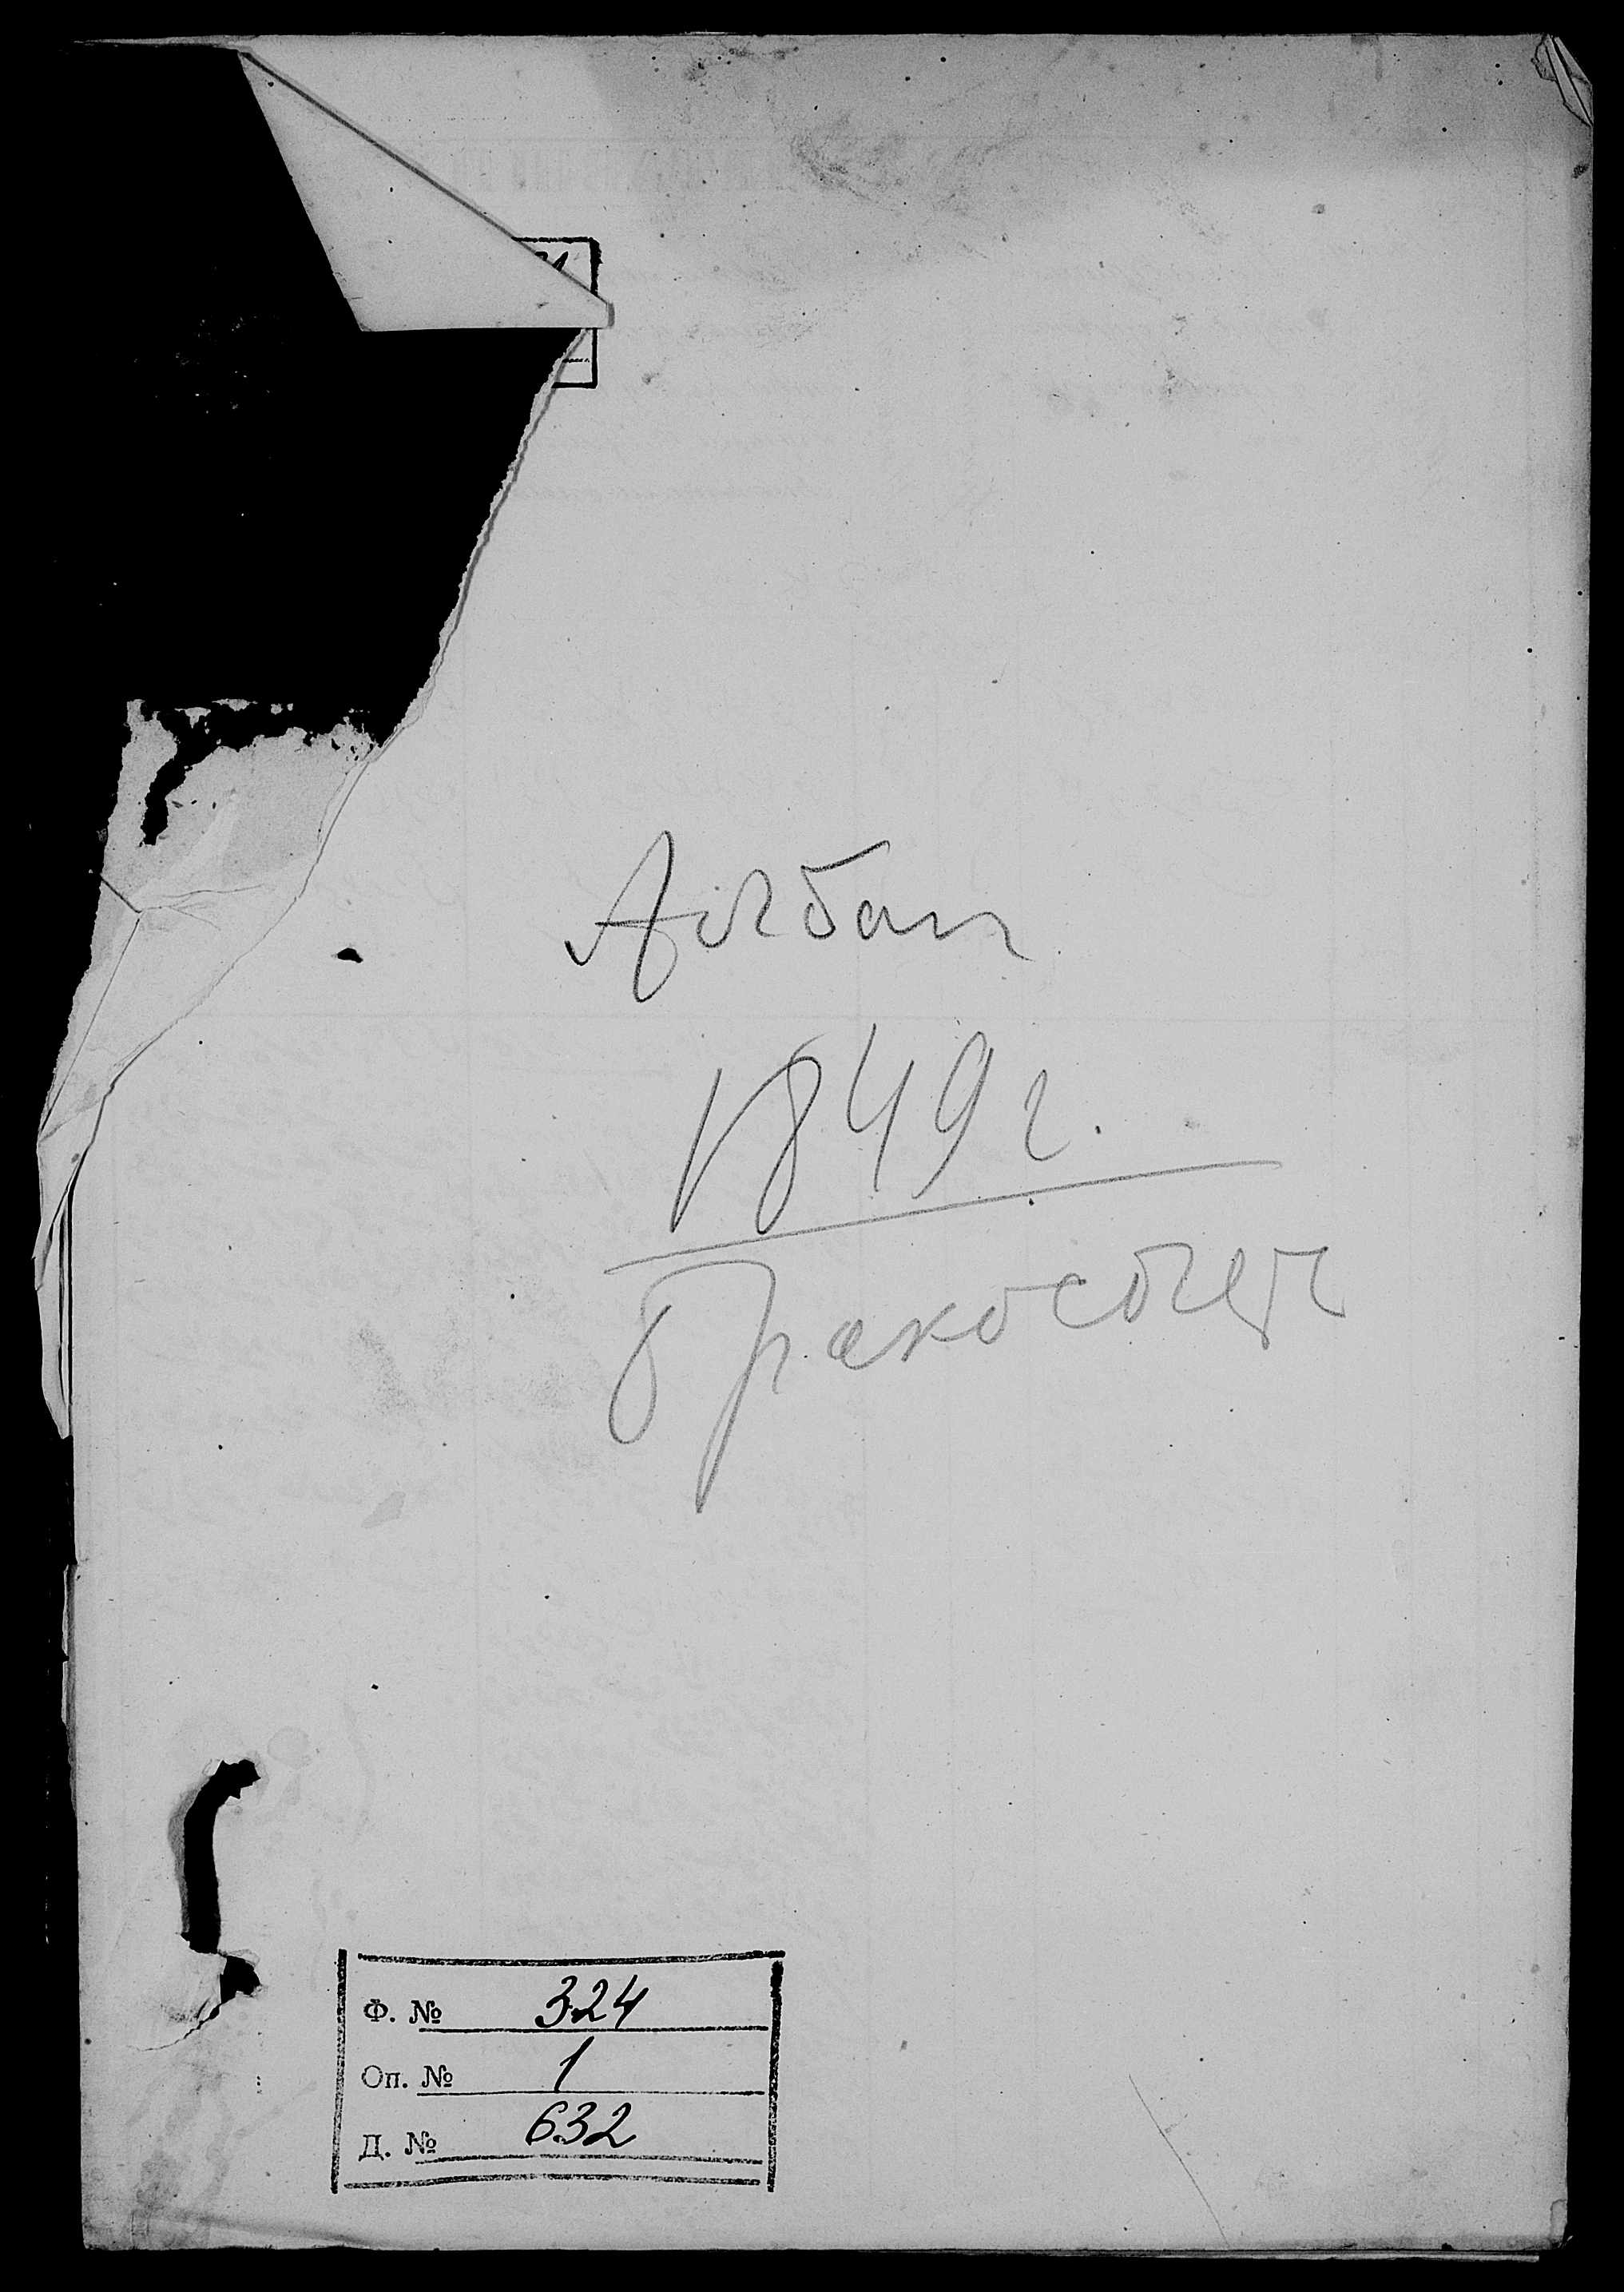 Албан
1849 г.
бракосочет
Ф. № 324
Оп. № 1
Д. № 632